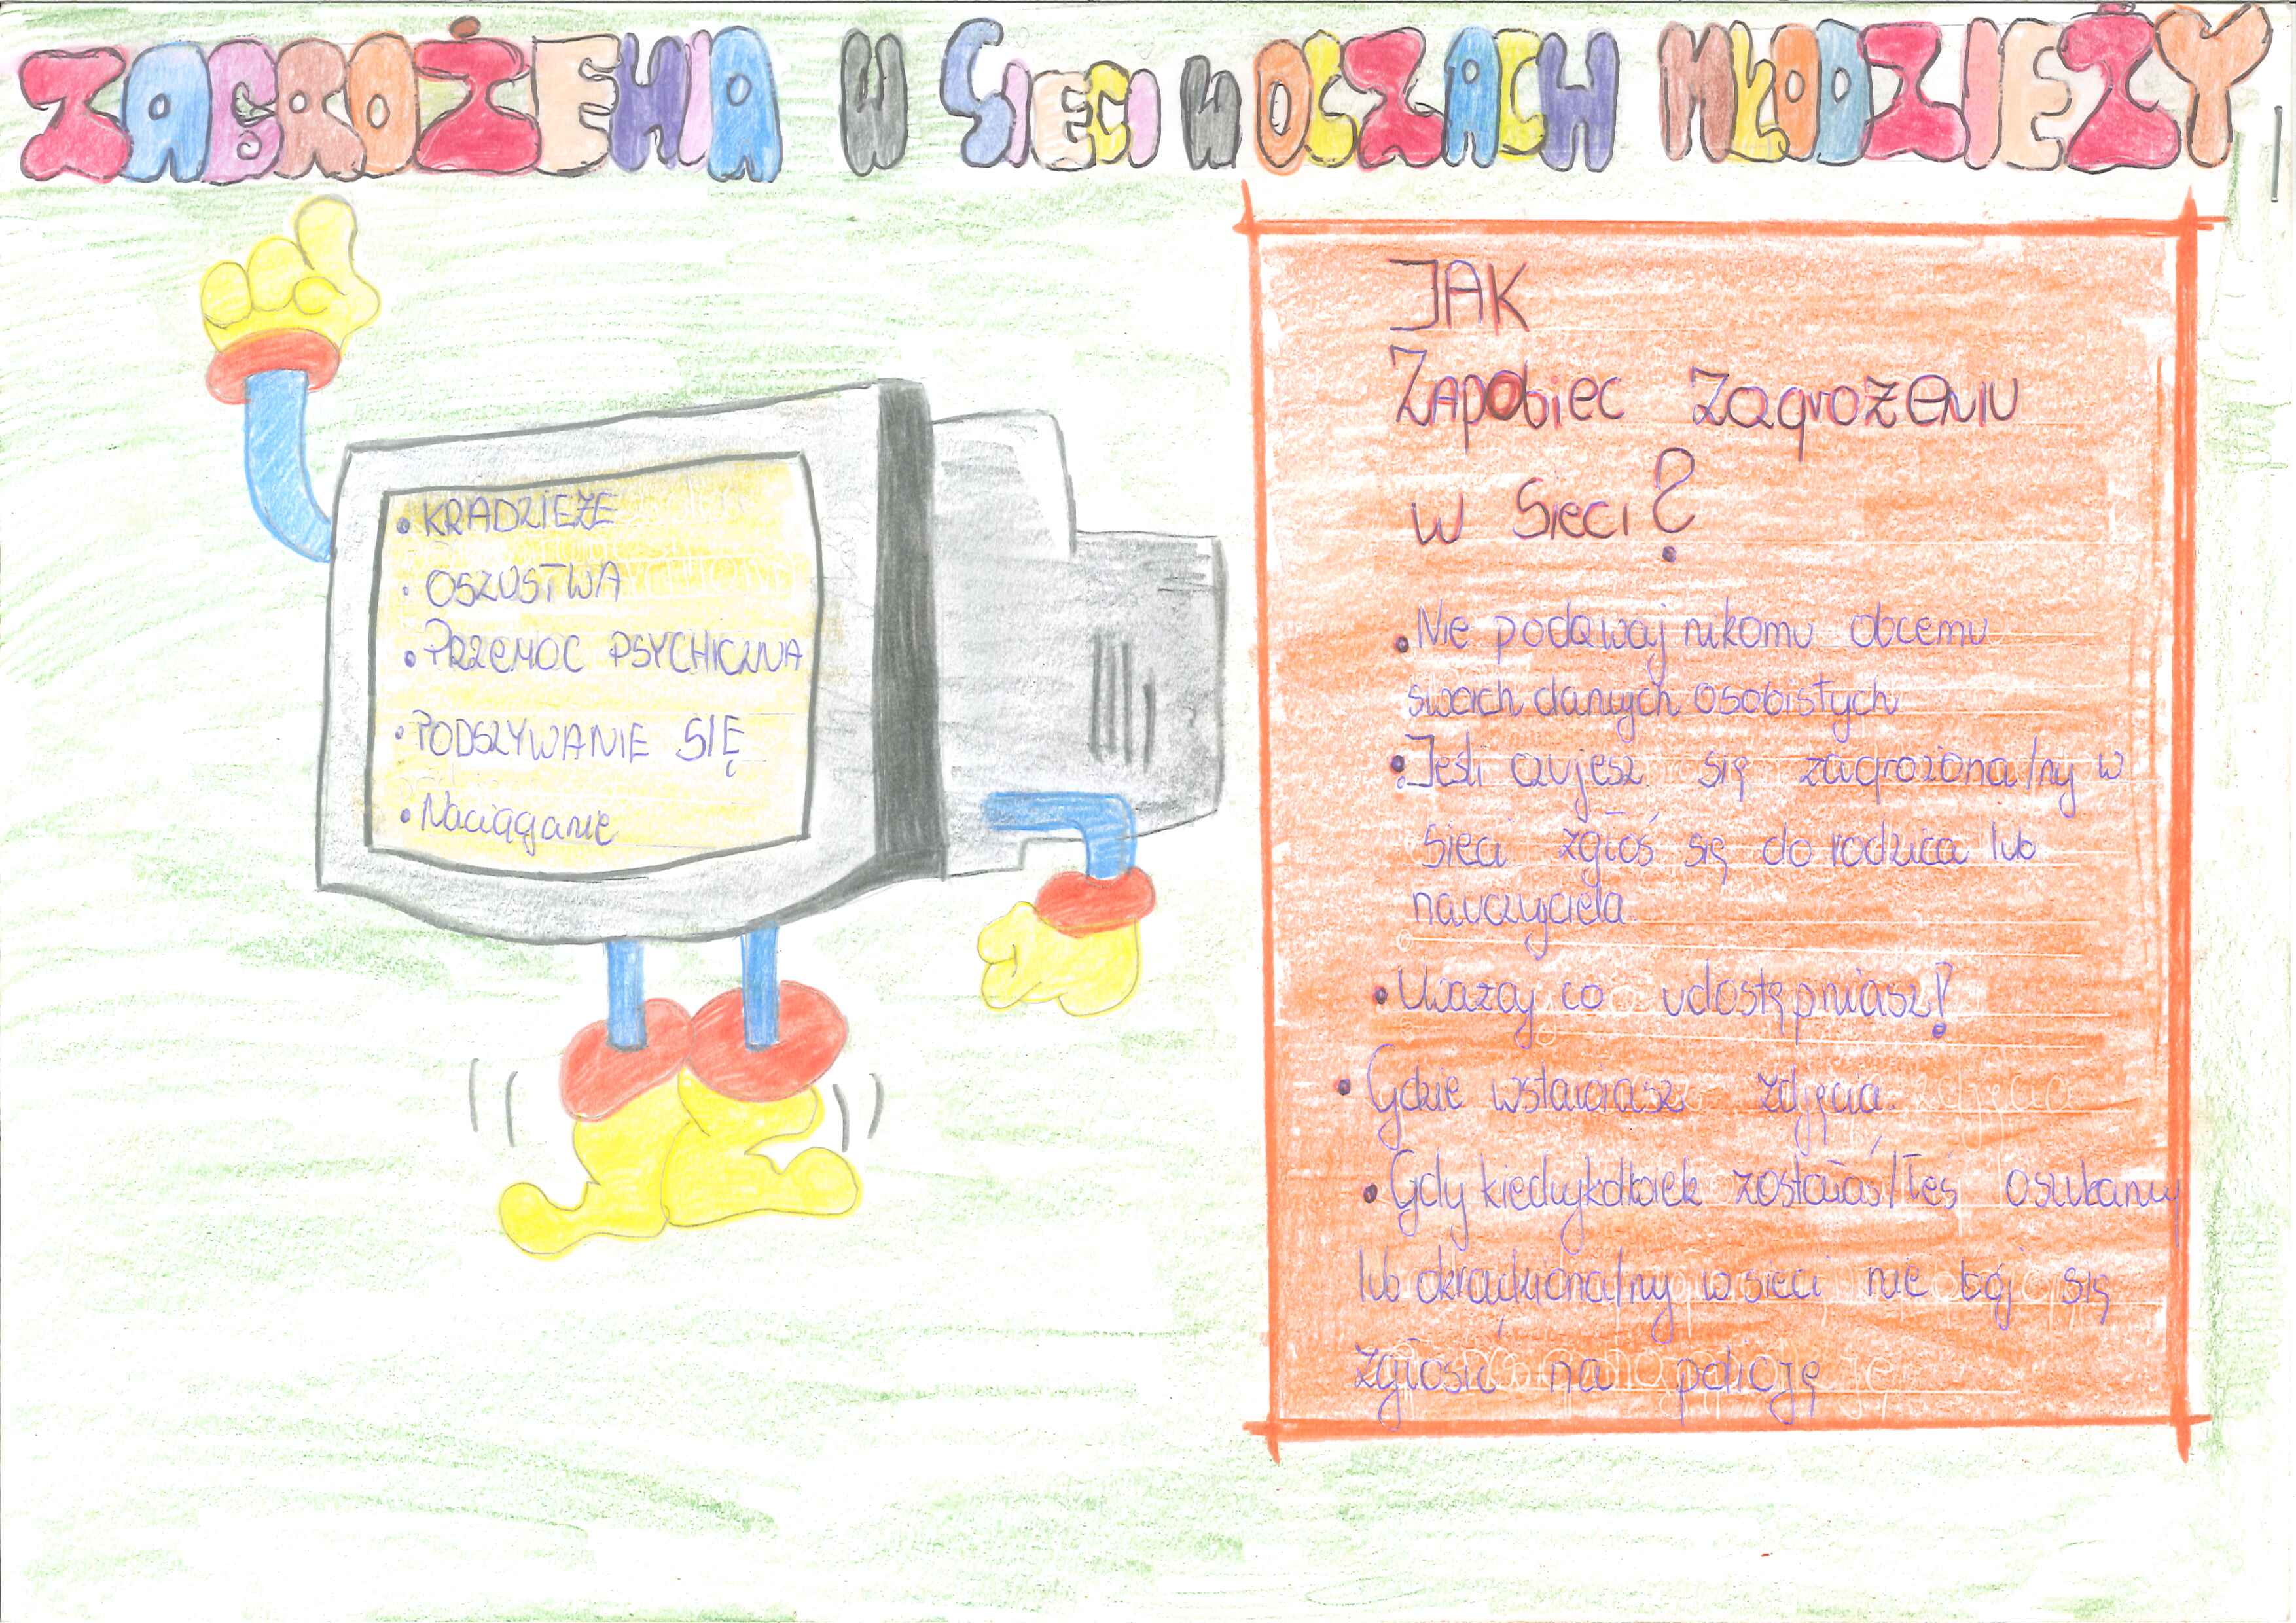 ZAGROŻENIA W SIECI W OCZACH MŁODZIEŻY
• KRADZIEŻE
• OSZUSTWA
• PRZEMOC PSYCHICZNA
• PODSZYWANIE SIĘ
• Naciąganie
JAK
ZAPObiEC ZAGROŻENIU
W Sieci?
• Nie podawaj nikomu obcemu
swoich danych osobistych
• Jeśli czujesz się zagrożona/ny w
sieci zgłoś się do rodzica lub
nauczyciela
• Uważaj co udostępniasz!
• Gdzie wstawiasz zdjęcia.
• Gdy kiedykolwiek zostałaś/łeś oszukany
lub okradziona/ny w sieci nie bój się
zgłosić na policję